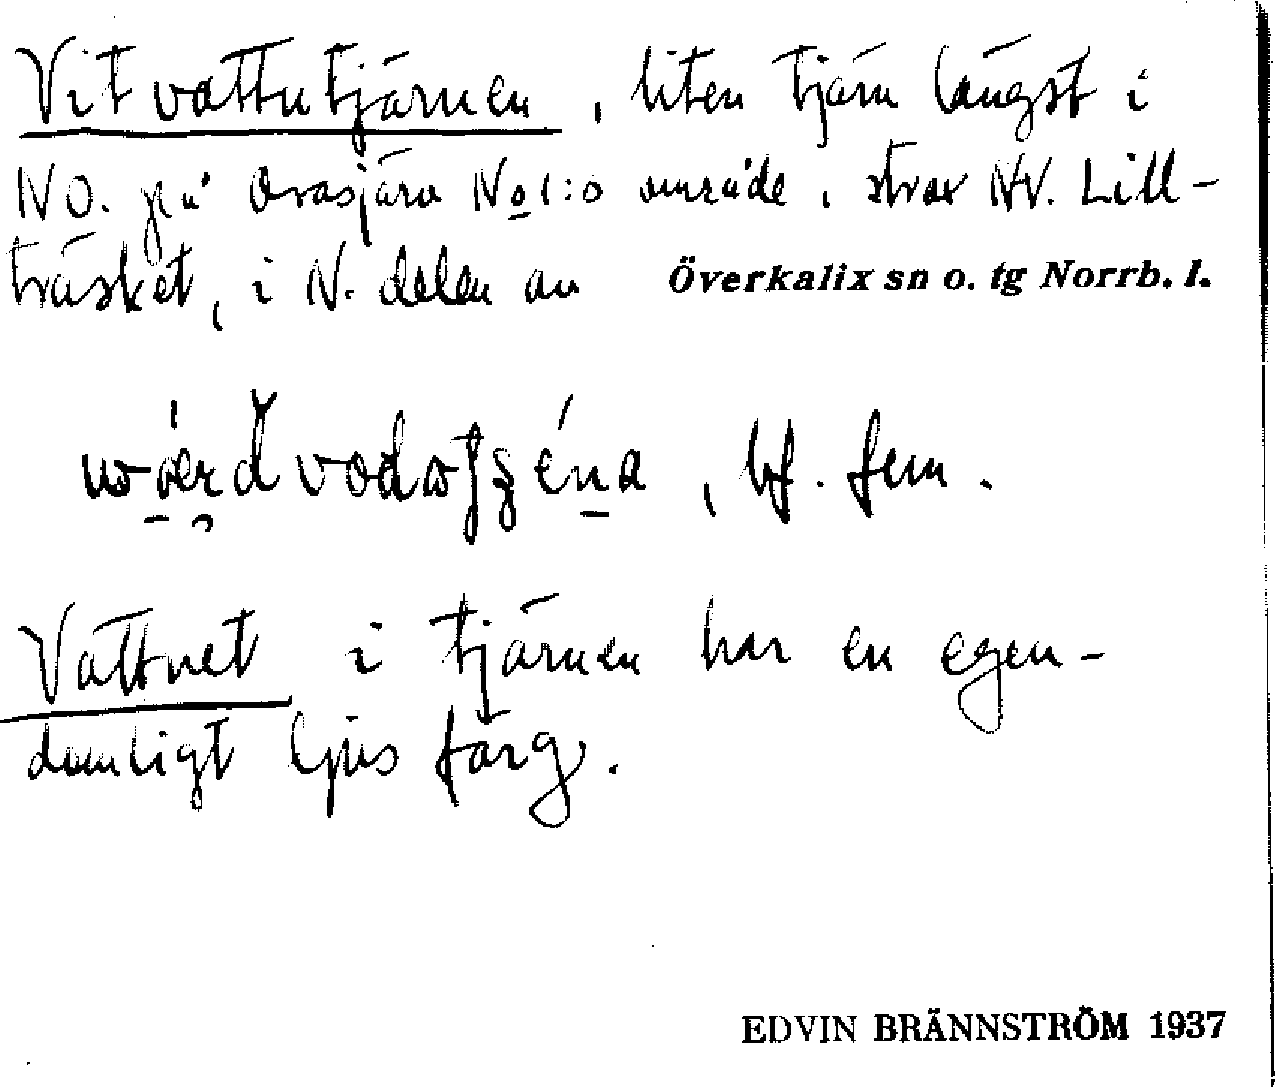 Vitvattutjärnen, liten tjärn längst i
NO. på Orasjärv No 1:s område, strax NV. Lill-
träsket, i N. delen av Överkalix sn o. tg Norrb. l.
, bf. fem.
Vattnet i tjärnen har en egen-
domligt ljus färg.
EDVIN BRÄNNSTRÖM 1937